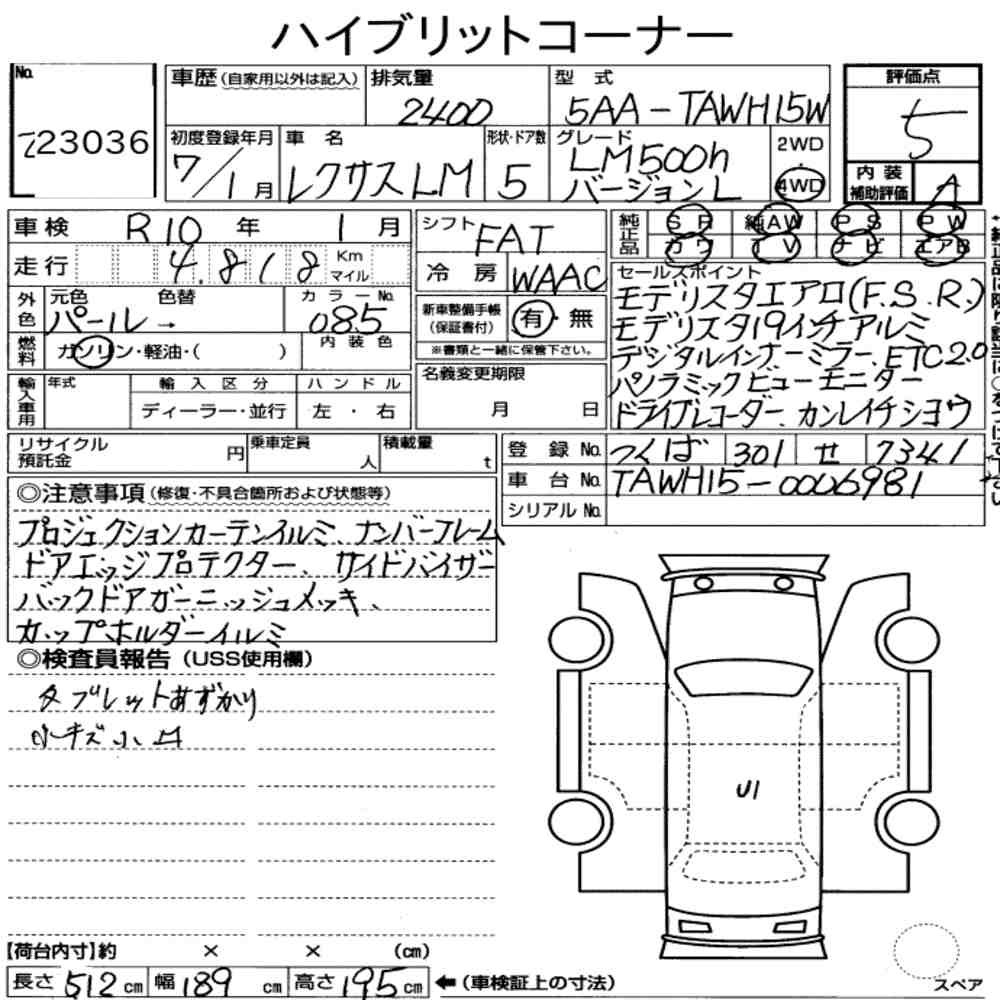 ハイブリットコーナー
No.
223036
車歴(自家用以外は記入)
排気量
2400
型式
5AA-TAWH15W
初度登録年月
7/1月
車名
レクサスLM
形状・ドア数
5
グレード
LM500h
バージョンL
2WD
・
4WD
評価点
5
内装
補助評価
A
車検 R10年 1月
走行 4,818 Km
マイル
外色
元色 色替
パール→
カラーNo.
085
燃料
ガソリン・軽油・( )
内装色
輸入車用
年式
輸入区分
ディーラー・並行
ハンドル
左・右
シフト
FAT
冷房
WAAC
新車整備手帳
(保証書付)
有・無
※書類と一緒に保管下さい。
名義変更期限
月 日
純正品
SR 純AW PS PW
カワ TV ナビ エアB
セールスポイント
モデリスタエアロ(F.S.R.)
モデリスタ19インチアルミ
デジタルインナーミラー、ETC2.0
パノラミックビューモニター
ドライブレコーダー、カンレイチシヨウ
リサイクル
預託金
円
乗車定員
人
積載量
t
登録No. つくば 301 せ 7341
車台No. TAWH15-0006981
シリアルNo.
◎注意事項(修復・不具合箇所および状態等)
プロジェクションカーテンイルミ、ナンバーフレーム
ドアエッジプロテクター、サイドバイザー
バックドアガーニッシュメッキ、
カップホルダーイルミ
◎検査員報告(USS使用欄)
タブレットあずかり
小キズ小凹
U1
【荷台内寸】約 × × (cm)
長さ 512 cm 幅 189 cm 高さ 195 cm ←(車検証上の寸法)
スペア